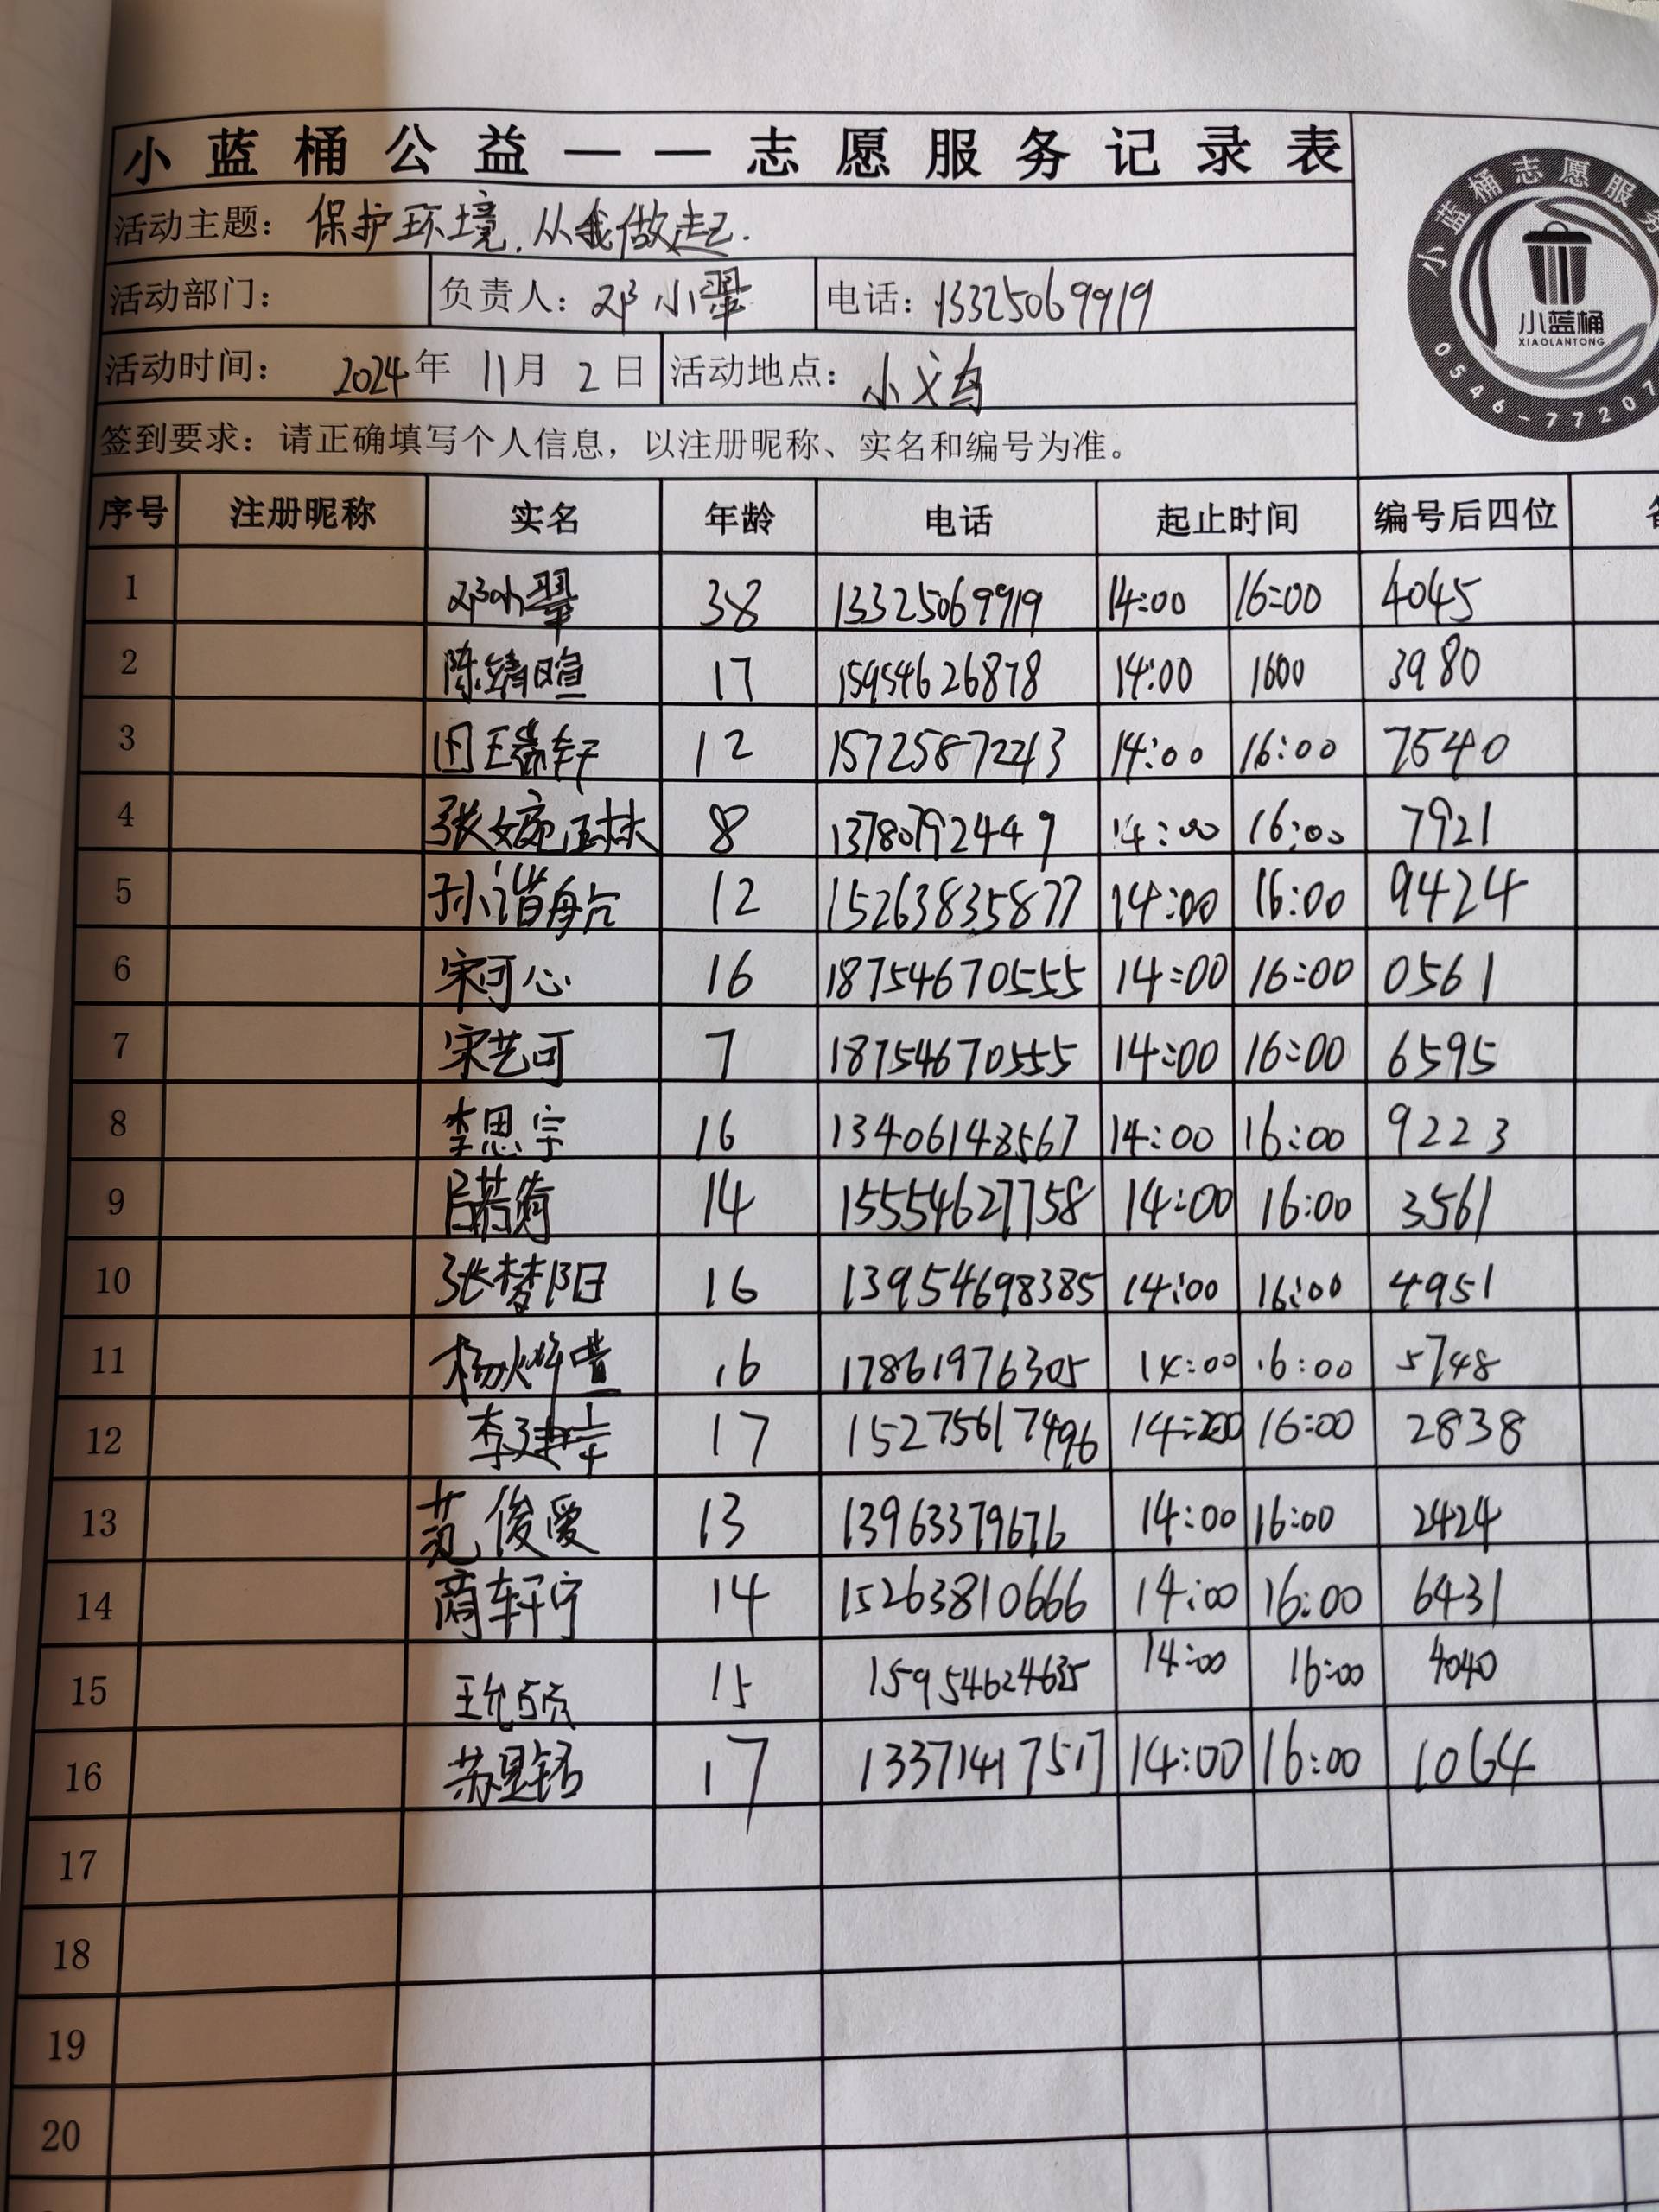 小蓝桶公益——志愿服务记录表
小蓝桶志愿服务
小蓝桶
XIAOLANTONG
0546-77207
活动主题：保护环境.从我做起.
活动部门： 负责人：邓小翠 电话：13325069919
活动时间： 2024年 11月 2日 活动地点：小义乌
签到要求：请正确填写个人信息，以注册昵称、实名和编号为准。
序号 注册昵称 实名 年龄 电话 起止时间 编号后四位
1 邓小翠 38 13325069919 14:00 16:00 4045
2 陈婧暄 17 15954626878 14:00 1600 3980
3 田王瑞轩 12 15725872243 14:00 16:00 7540
4 张婉琳 8 13780792449 14:00 16:00 7921
5 孙谐舟 12 15263835877 14:00 16:00 9424
6 宋可心 16 18754670555 14:00 16:00 0561
7 宋艺可 7 18754670555 14:00 16:00 6595
8 李思宇 16 13406148567 14:00 16:00 9223
9 14 15554627758 14:00 16:00 3561
10 张梦阳 16 13954698385 14:00 16:00 4951
11 杨 16 17861976305 14:00 16:00 5748
12 李建 17 15275617496 14:00 16:00 2838
13 范俊爱 13 13963379676 14:00 16:00 2424
14 商轩宁 14 15263810666 14:00 16:00 6431
15 王允硕 15 15954624635 14:00 16:00 4040
16 苏 17 13371417517 14:00 16:00 1064
17
18
19
20